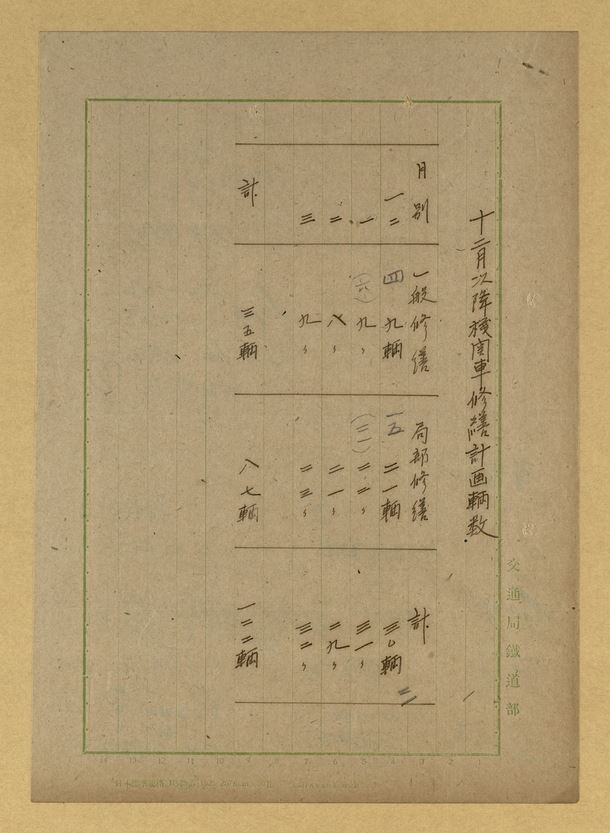 交通局鐵道部
十二月以降機関車修繕計画輌数
月別 一般修繕 局部修繕 計
一二 四 九輌 一五 二一輌 三〇輌
一 (六) 九〃 (三一) 二二〃 三一〃
二 八〃 二一〃 二九〃
三 九〃 二三〃 三二〃
計 三五輌 八七輌 一二二輌